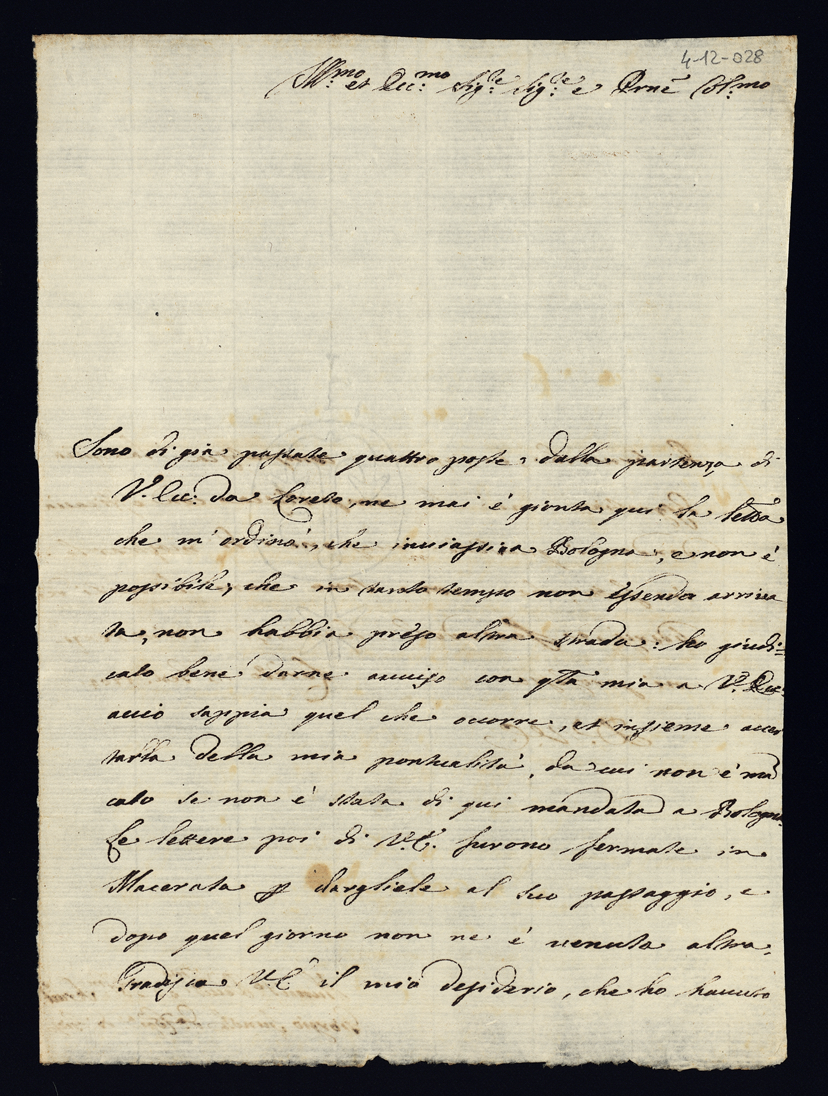 4-12-028
Ill.mo et Ecc.mo Sig.re Sig.re e Prne Col.mo
Sono di già passate quattro poste, dalla partenza di
V. Ecc. da Loreto, ne mai è gionta qui la lettra
che m'ordinò, che inviassi a Bologna, e non è
possibile, che in tanto tempo non essendo arriva
ta, non habbia preso altra strada: ho giudi=
cato bene darne avviso con qta mia a V. Ecc:
acciò sappia quel che occorre, et insieme accer
tarla della mia pontualità, da cui non è man
cato se non è stata di qui mandata a Bologna.
Le lettere poi di V. E. furono fermate in
Macerata p dargliele al suo passaggio, e
dopo quel giorno non ne è venuta altra.
Gradisca V. E. il mio desiderio, che ho havuto